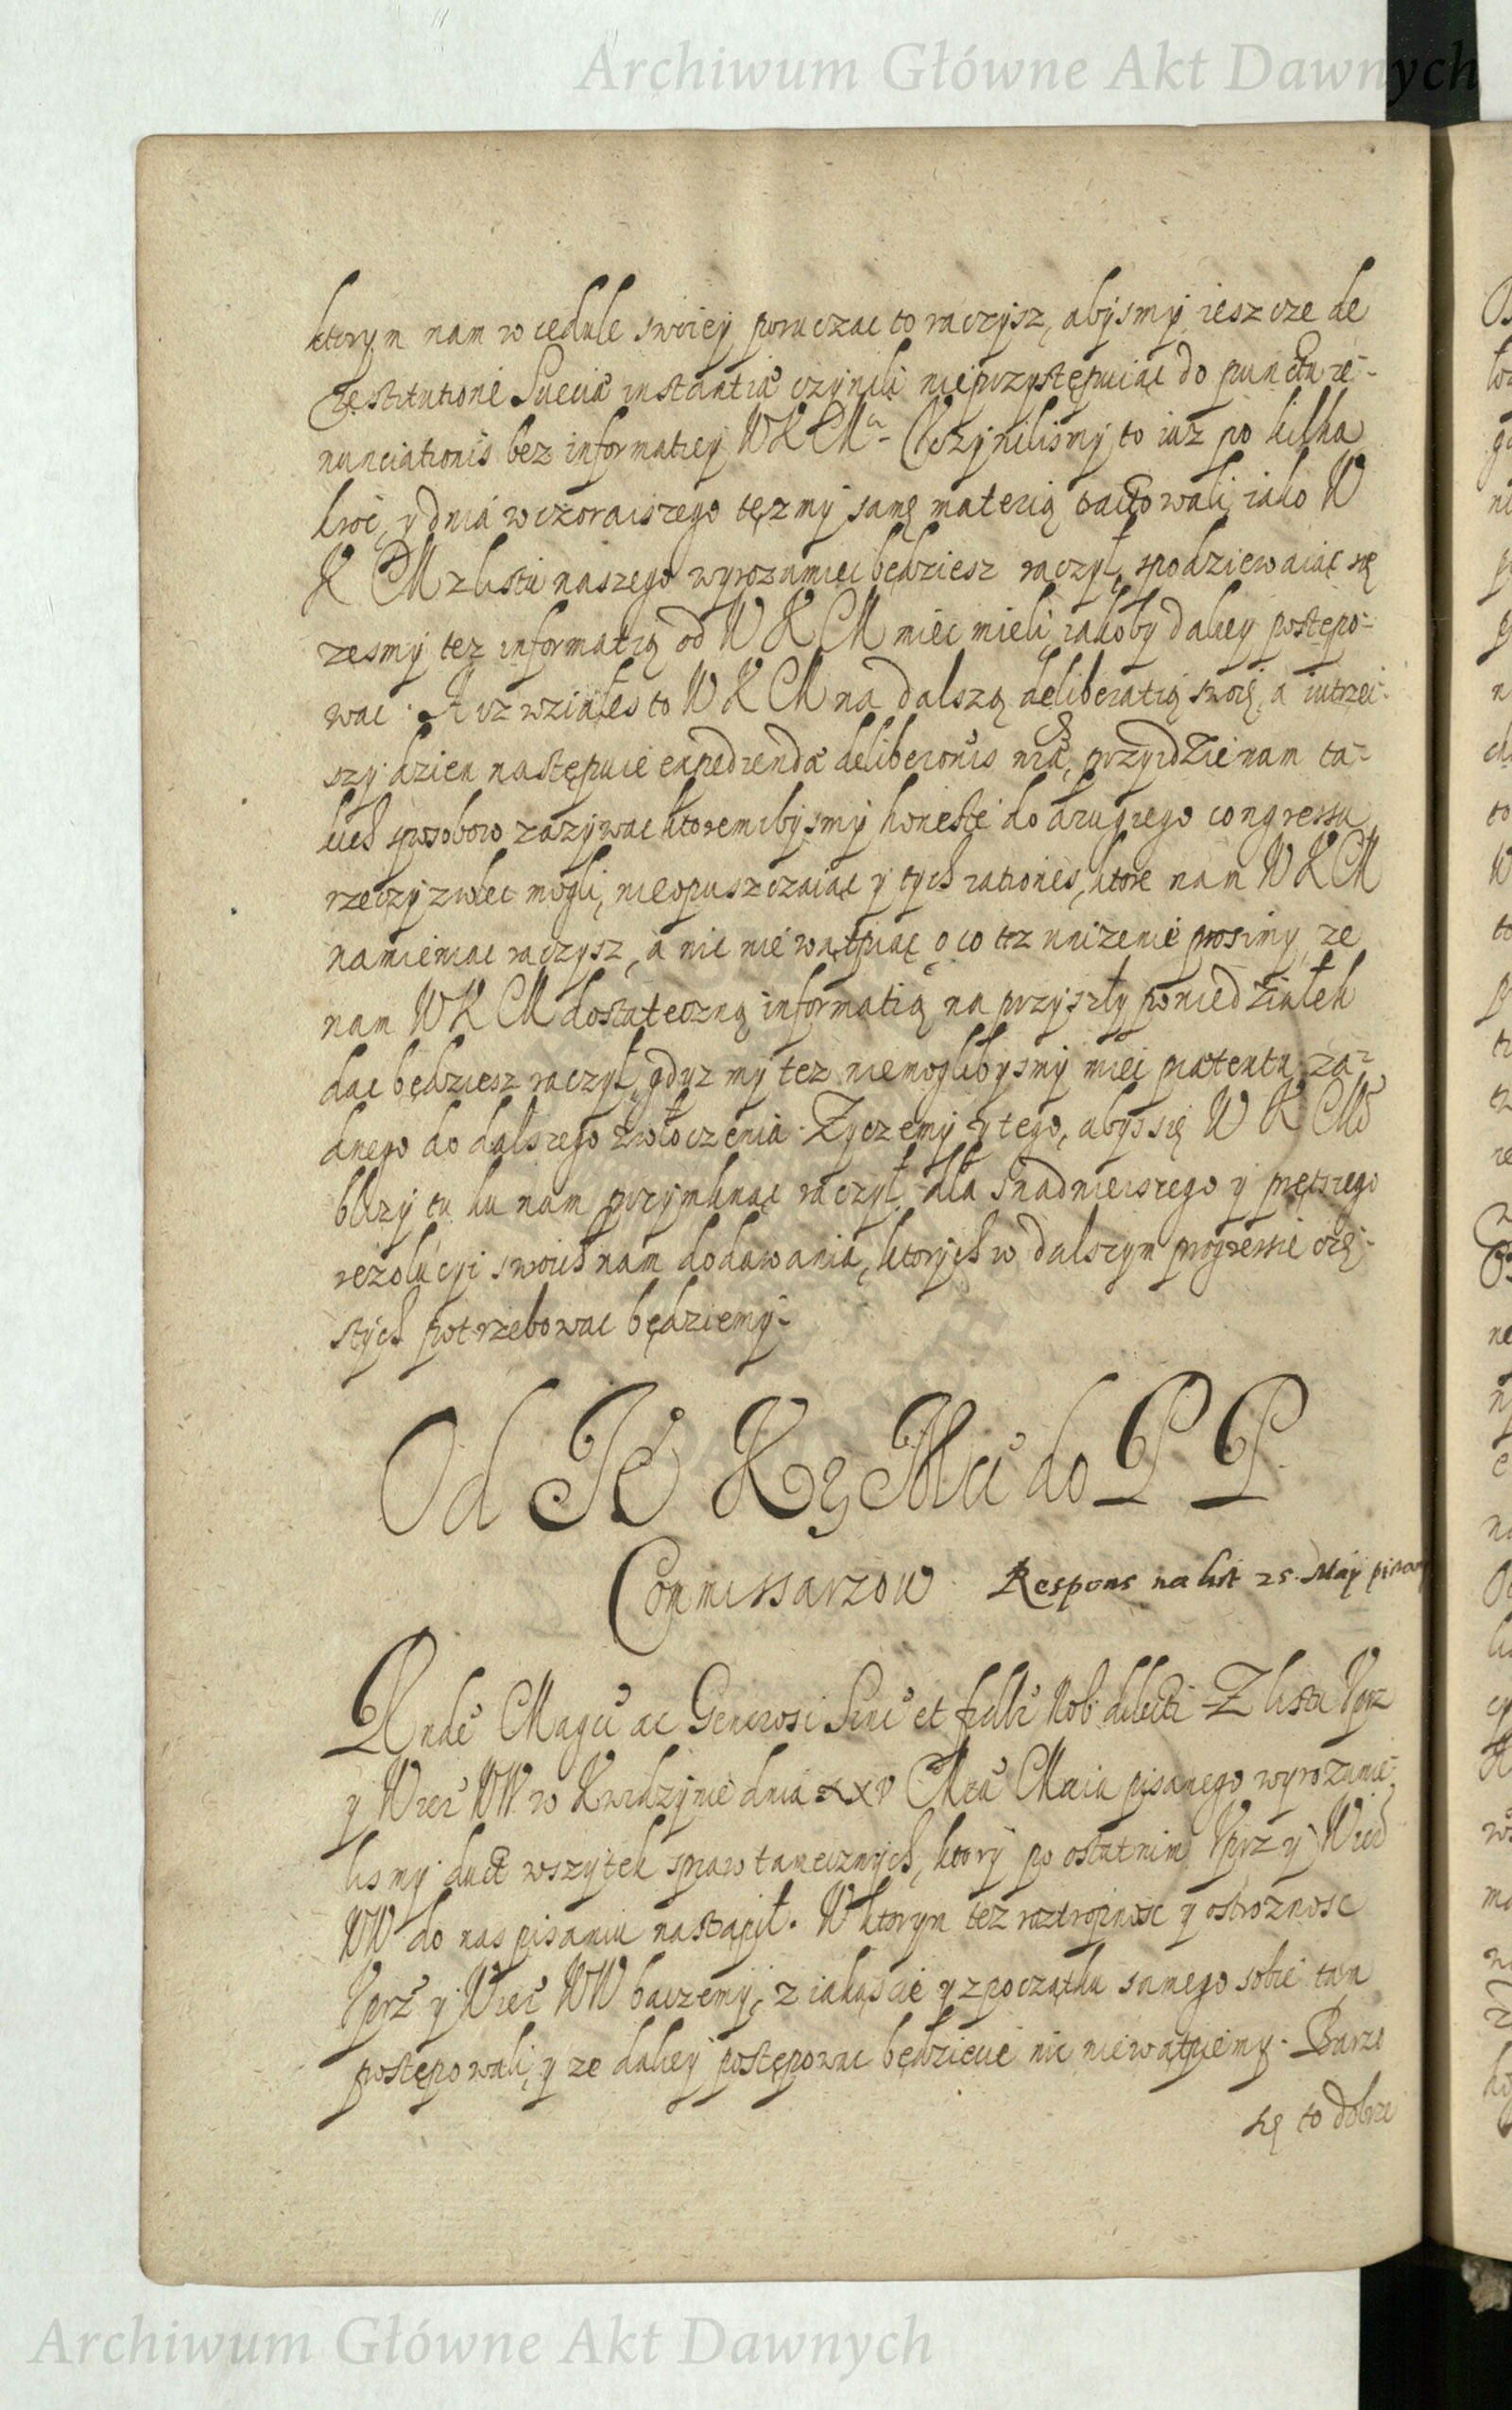 Archiwum Główne Akt Dawnych
ktorym nam w cedule swoiey poruczac to raczysz, abysmy ieszcze de
restitutione Sueciæ instantiã czynili nieprzystępuiąc do punctu re-
nunciationis bez informatiey WKM. Uczynilismy to iuz po kilka
kroć, y dnia wczoraiszego tęzmy samę materią tractowali, iako W
K M z listu naszego wyrozumieć będziesz raczył, spodziewaiąc się
zesmy tez informatią od W K M mieć mieli, iakoby daley postępo-
wać. A iz wziąłes to W K M na dalszą deliberatią swoię, a iutrzei-
szy dzien następuie expedienda deliberonis nrã, przyidzie nam ta-
kich sposobow zazywac ktoremibysmy honeste do drugiego congressu
rzeczy zwlec mogli, nieopuszczaiąc y tych rationes, ktore nam W K M
namieniac raczysz, a nic nie wątpiąc o co tez unizenie prosimy, ze
nam W K M dostateczną informatią na przyszły poniedziałek
dac będziesz raczył, gdyz my tez nie moglibysmy mieć pratextu za-
dnego do dalszego zwłoczenia. Zyczemy y tego, abys się W K M
blizy tu ku nam przymknąć raczył, dla snadnieiszego y prętszego
rezolucyi swoich nam dodawania, ktorych w dalszym progressie czę-
stych potrzebowac będziemy.
Od Je Kᶒ Mci do P P
Commissarzow. Respons na list 25. Maij pisany
Rnde Magci ac Generosi Sinc et fidlr Nob. dilecti. Z listu Uprz
y Wier WW w Kwidzynie dnia XXV Mca Maia pisanego, wyrozumie-
lismy duct wszytek spraw tamecznych, ktory po ostatnim Uprz y Wier
WW do nas pisaniu nastąpił. W ktorym tez roztropnosc y ostroznosc
Uprz y Wier WW baczemy, z iakąscie y z początku samego sobie tam
postępowali, y ze daley postępowac będziecie nic nie wątpiemy. Barzo
się to dobrze
Archiwum Główne Akt Dawnych